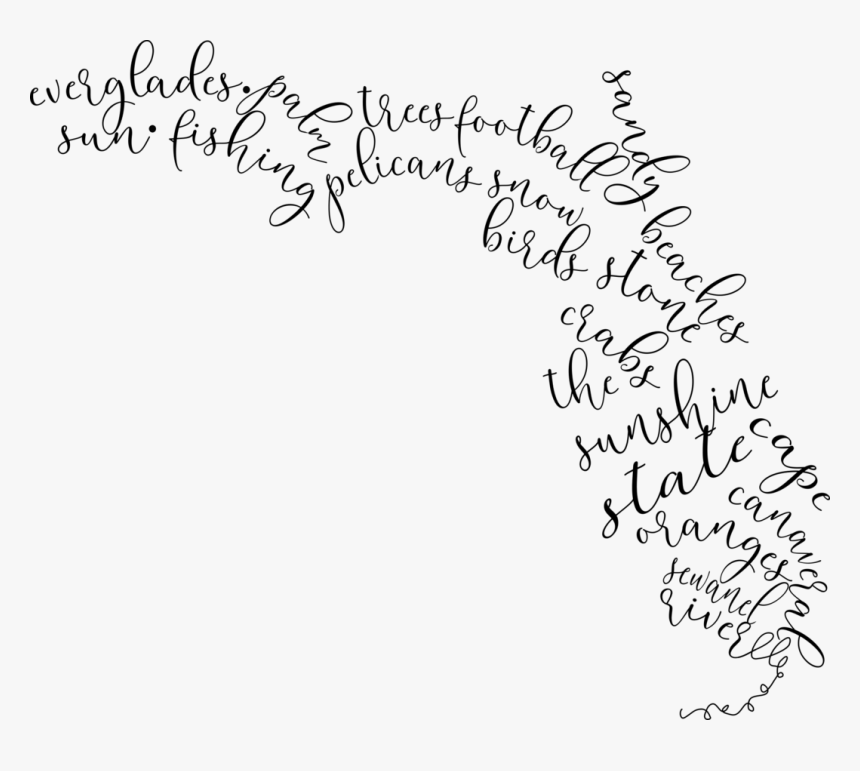 everglades • palm trees football
sun • fishing pelicans snow birds
sandy beaches
stone crabs
the sunshine state
cape canaveral
oranges
sewanee river